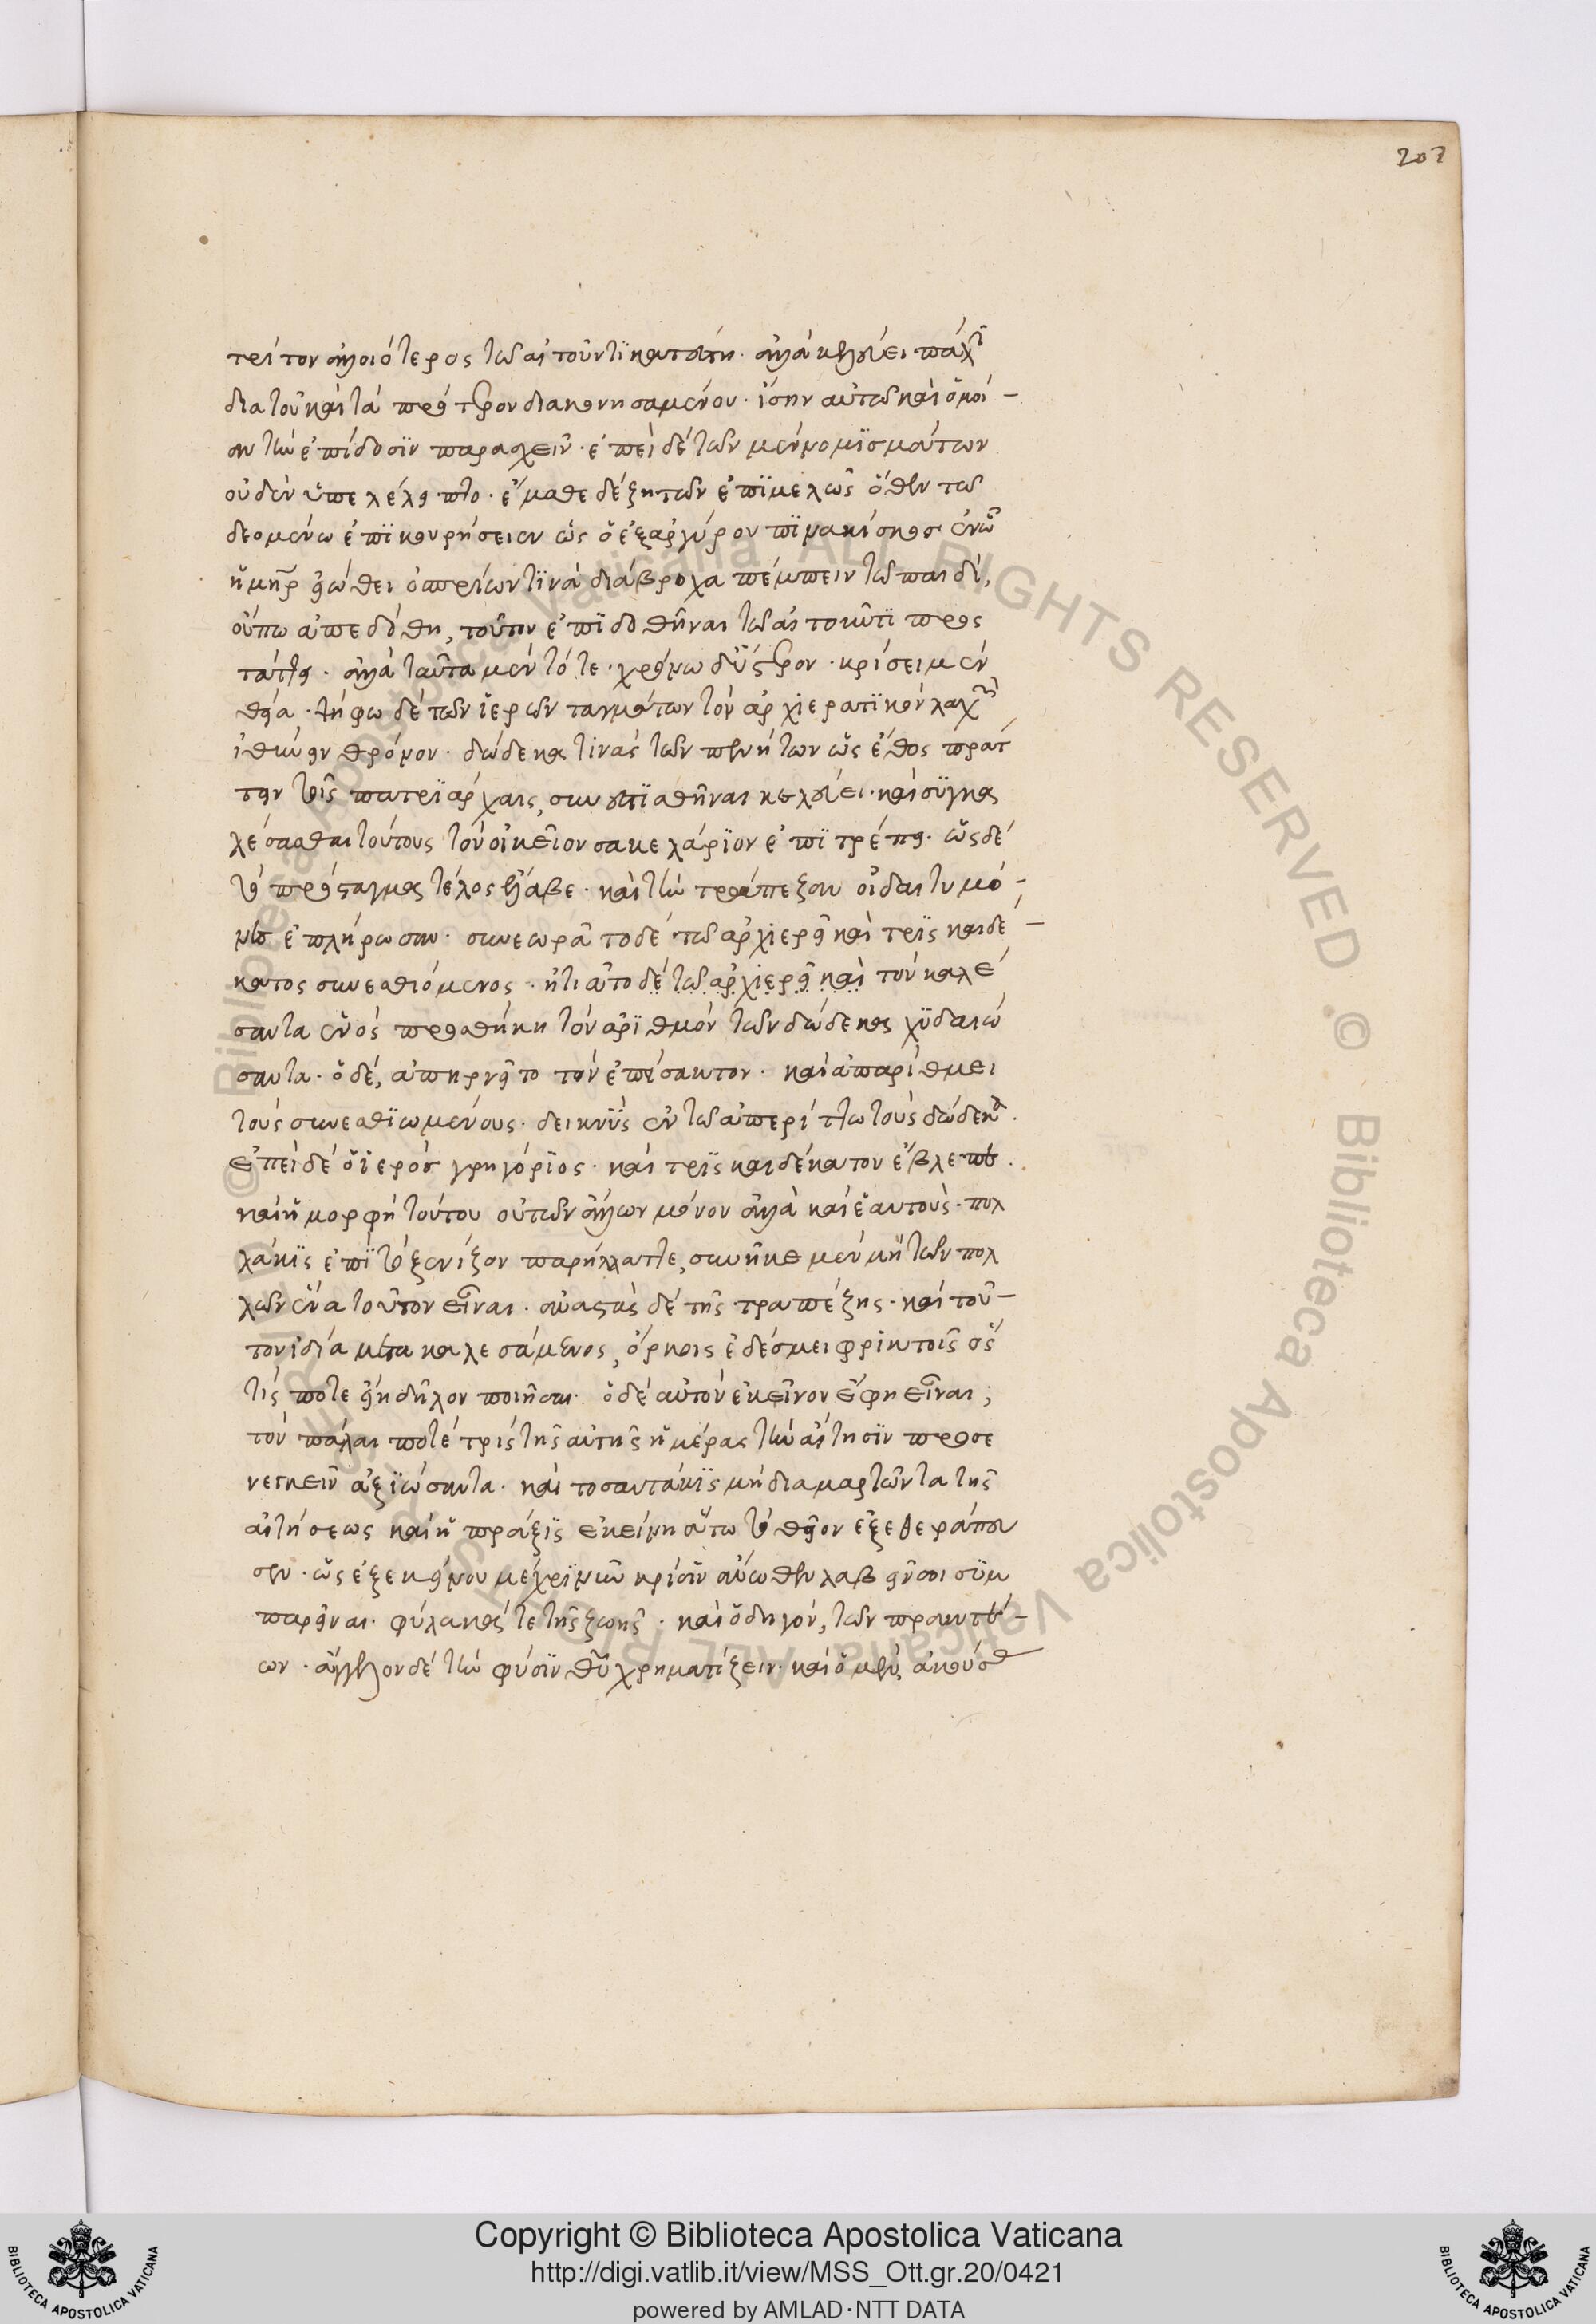 207
τρίτον ἀλλοιότερος τῶ αἰτοῦντι κατέστη· ἀλλὰ κελεύει πάλιν
διὰ τοῦ καὶ τὰ πρότερον διακονησαμένου· ἴσην αὐτῶ καὶ ὁμοί-
αν τὴν ἐπίδοσϊν παρασχεῖν· ἐπεὶ δὲ τῶν μὲν νομϊσμάτων
οὐδὲν ὑπελέλειπτο· ἔμαθε δὲ ζητῶν ἐπϊμελῶς ὅθεν τῶ
δεομένω ἐπϊκουρήσειεν ὡς ὁ ἐξ ἀργύρου πϊνακίσκος ἐν ὧ
ἡ μήτηρ εἰώθει ὀσπρίων τϊνὰ διάβροχα πέμπειν τῶ παιδί,
οὔπω ἀπεδόθη, τοῦτον ἐπϊδοθῆναι τῶ αἰτοῦντϊ προς
τάττει· ἀλλὰ ταῦτα μὲν τότε· χρόνω δ' ὕστερον· κρίσει μὲν
θεία· ψήφω δὲ τῶν ἱερῶν ταγμάτων τὸν ἀρχιερατϊκὸν λαχὼν
ἰθύνειν θρόνον· δώδεκα τινὰς τῶν πενήτων ὡς ἔθος πράτ
τειν τοῖς πατριάρχαις, συνεστϊαθῆναι κελεύει· καὶ συγκα
λέσασθαι τούτους τὸν οἰκεῖον σακελάριον ἐπϊτρέπει· ὡς δὲ
τὸ πρόσταγμα τέλος ἔλαβε· καὶ τὴν τράπεζαν οἱ δαιτυμό-
νες ἐπλήρωσαν· συνεωρᾶτο δὲ τῶ ἀρχιερεῖ καὶ τρϊς καιδέ-
κατος συνεσθιόμενος· ἠτιᾶτο δὲ τῶ ἀρχιερεῖ καὶ τὸν καλέ
σαντα ἑνὸς προσθήκη τὸν ἀρϊθμὸν τῶν δώδεκα χϋδαιώ
σαντα· ὁ δέ, ἀπηρνεῖτο τὸν ἐπείσακτον· καὶ ἀπαρίθμει
τοὺς συνεσθϊωμένους· δεικνϋς ἐν τῶ ἀπερίττω τοὺς δώδεκα.
ἐπεὶ δὲ ὁ ἱερὸς γρηγόρϊος· καὶ τρϊς καιδέκατον ἔβλεπε.
καὶ ἡ μορφὴ τούτου οὐ τῶν ἄλλων μόνον ἀλλὰ καὶ ἑαυτοῦς· πολ
λάκϊς ἐπϊ τὸ ξενίζον παρήλλαττε, συνῆκε μὲν μὴ τῶν πολ
λῶν ἕνα τοῦτον εἶναι· συναστὰς δὲ τῆς τραπέζης· καὶ τοῦ-
τον ἰδία μετακαλεσάμενος, ὅρκοις ἐδέσμει φρικτοῖς ὅς
τίς ποτε εἴη δῆλον ποιῆσαι· ὁ δὲ αὐτὸν ἐκεῖνον ἔφη εἶναι;
τὸν πάλαι ποτὲ τρὶς τῆς αὐτῆς ἡμέρας τὴν αἴτησϊν προσε
νεγκεῖν ἀξϊώσαντα· καὶ τοσαυτάκϊς μὴ διαμαρτῶντα τῆς
αἰτήσεως καὶ ἡ πράξϊς ἐκείνη οὕτω τὸ θεῖον ἐξεθεράπευ
σεν· ὡς ἐξ ἐκείνου μέχρϊ νῦν κρίσϊν ἄνωθεν λαβεῖν σοι σϋμ
παρεῖναι· φύλακά τε τῆς ζωῆς· καὶ ὁδηγόν, τῶν πρακτέ-
ων· ἄγγελον δὲ τὴν φύσϊν θεοῦ χρηματίζειν· καὶ ὁ μὲν, ἀκούσα